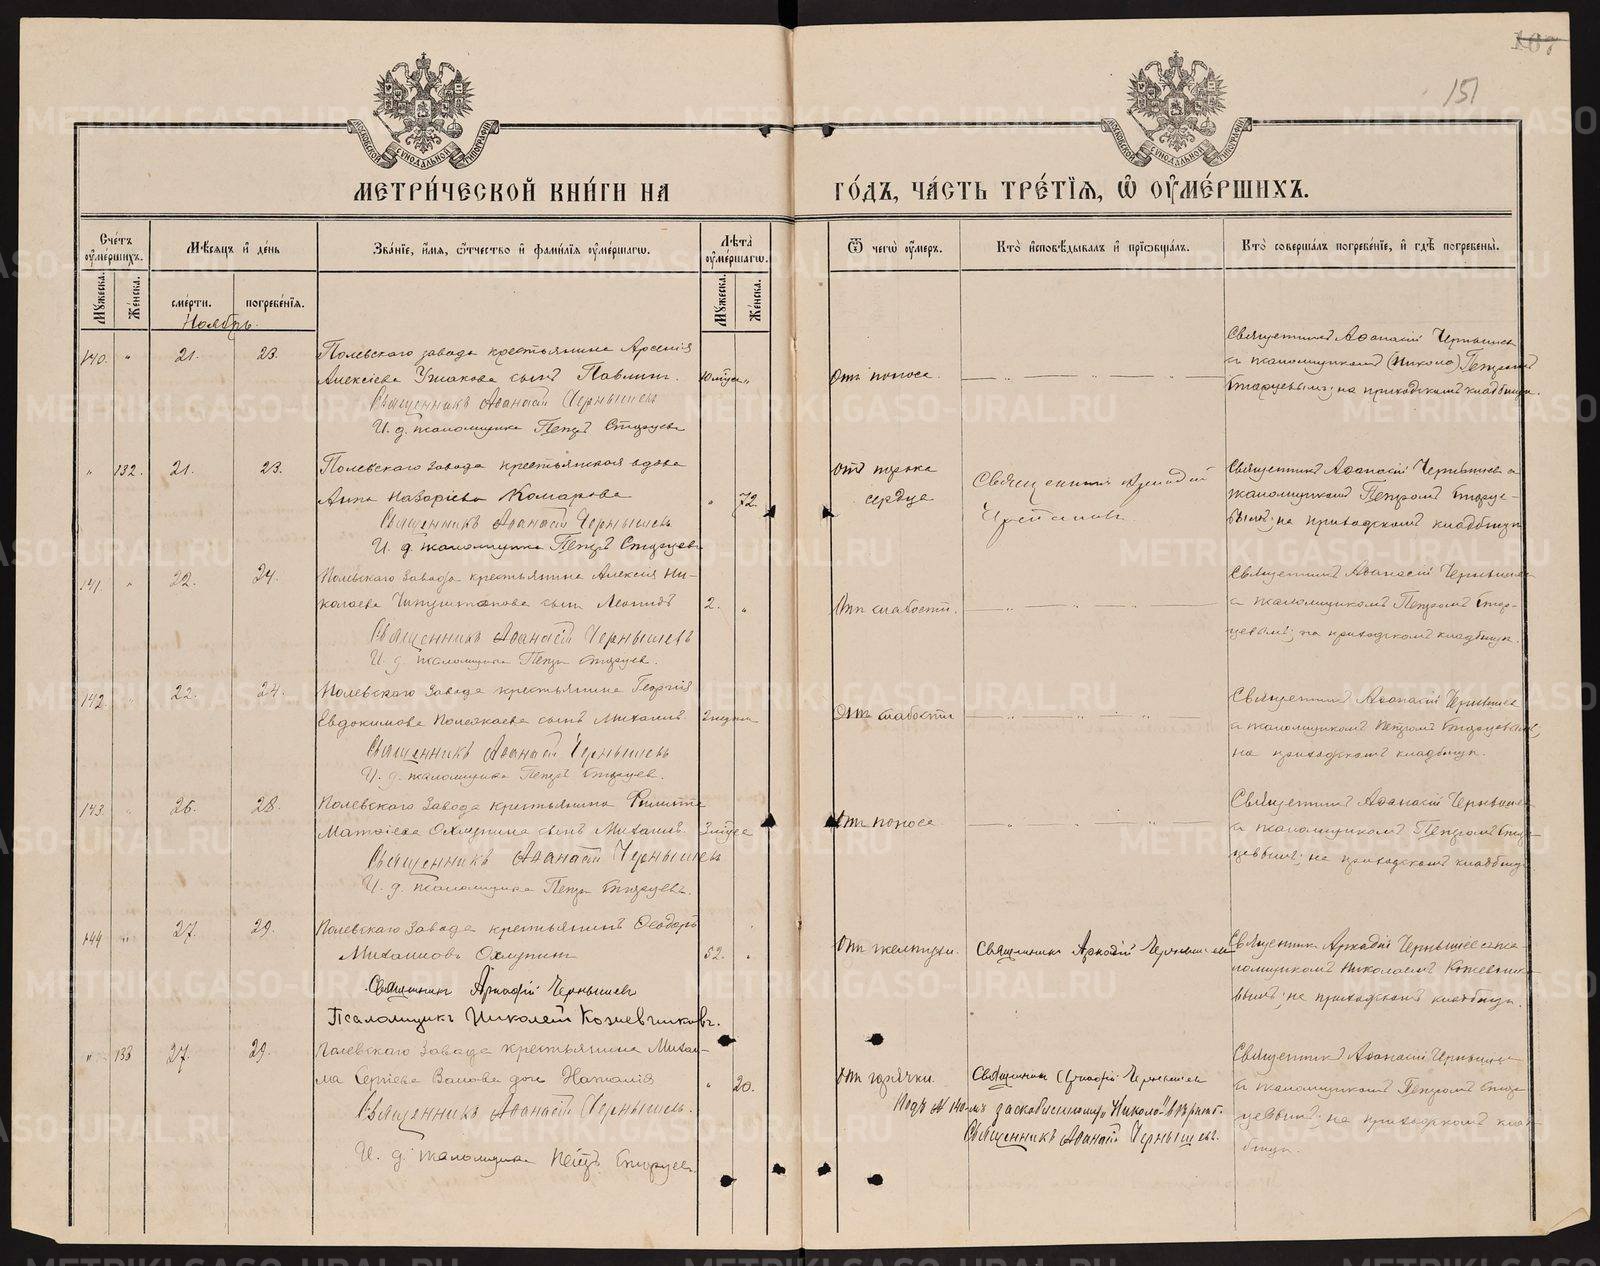 167
151
МОСКОВСКОЙ СѴНОДАЛЬНОЙ ТИПОГРАФІИ
МОСКОВСКОЙ СѴНОДАЛЬНОЙ ТИПОГРАФІИ
МЕТРИ́ЧЕСКОЙ КНИ́ГИ НА
ГО́ДЪ, ЧА́СТЬ ТРЕ́ТІѦ, Ѡ҆ ОУ҆МЕ́РШИХЪ.
Сче́тъ оу҆ме́ршихъ.
Мꙋжеска.
Же́нска.
Мѣ́сѧцъ и҆ де́нь
сме́рти.
погребе́нїѧ.
Зва́нїе, и҆́мѧ, ѻ҆́тчество и҆ фами́лїѧ оу҆ме́ршагѡ.
Лѣ́та оу҆ме́ршагѡ.
Мꙋжеска.
Же́нска.
Ѿ чегѡ̀ оу҆́меръ.
Кто̀ и҆сповѣ́дывалъ и҆ прїѡбща́лъ.
Кто̀ соверша́лъ погребе́нїе, и҆ гдѣ̀ погребены̀.
Ноябрь.
140. " 21. 23. Полевскаго завода крестьянина Арсенія
Алексіева Ушакова сынъ Павлинъ.
Священникъ Аѳанасій Чернышевъ
И. д. псаломщика Петръ
Отъ поноса.
Священникъ Аѳанасій Чернышевъ
и псаломщикомъ (Николо) Петромъ
на приходскомъ кладбищѣ.
" 132. 21. 23. Полевскаго завода крестьянская вдова
Анна Назаріева Комарова
" 72.
Священникъ Аѳанасій Чернышевъ
И. д. псаломщика Петръ
Отъ порока
сердца
Священникъ Аркадій
Священникъ Аѳанасій Чернышевъ и
псаломщикомъ Петромъ
на приходскомъ кладбищѣ
141. " 22. 24. Полевскаго завода крестьянина Алексія Ни-
колаева сынъ Леонидъ
2. "
Священникъ Аѳанасій Чернышевъ
И. д. псаломщика Петръ
Отъ слабости.
Священникъ Аѳанасій Чернышевъ
и псаломщикомъ Петромъ
на приходскомъ кладбищѣ.
142. " 22. 24. Полевскаго завода крестьянина Георгія
Евдокимова сынъ Михаилъ.
Священникъ Аѳанасій Чернышевъ
И. д. псаломщика Петръ
Отъ слабости
Священникъ Аѳанасій Чернышевъ
и псаломщикомъ Петромъ
на приходскомъ кладбищѣ.
143. " 26. 28. Полевскаго завода крестьянина Филиппа
Матѳіева Охлупина сынъ Михаилъ. 3 мѣсяца
Священникъ Аѳанасій Чернышевъ
И. д. псаломщика Петръ
Отъ поноса
Священникъ Аѳанасій Чернышевъ
и псаломщикомъ Петромъ
на приходскомъ кладбищѣ
144 " 27. 29. Полевскаго завода крестьянинъ Ѳеодоръ
Михаиловъ Охлупинъ
52. "
Священникъ Аркадій Чернышевъ
Псаломщикъ Николай Кожевниковъ.
Отъ желтухи.
Священникъ Аркадій Чернышевъ
Священникъ Аркадій Чернышевъ съ пса-
ломщикомъ Николаемъ Кожевнико-
вымъ; на приходскомъ кладбищѣ.
" 133 27. 29. Полевскаго завода крестьянина Михаи-
ла Сергіева дочь Наталія
" 20.
Священникъ Аѳанасій Чернышевъ.
И. д. псаломщика Петръ
Отъ горячки.
Священникъ Аркадій Чернышевъ
Подъ № 140-мъ заскобленному „Николо" вѣрить.
Священникъ Аѳанасій Чернышевъ.
Священникъ Аѳанасій Чернышевъ
и псаломщикомъ Петромъ
на приходскомъ клад-
бищѣ.
METRIKI.GASO-URAL.RU